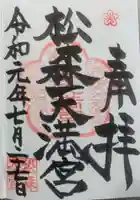 奉拝
松森天満宮
令和元年七月二十七日